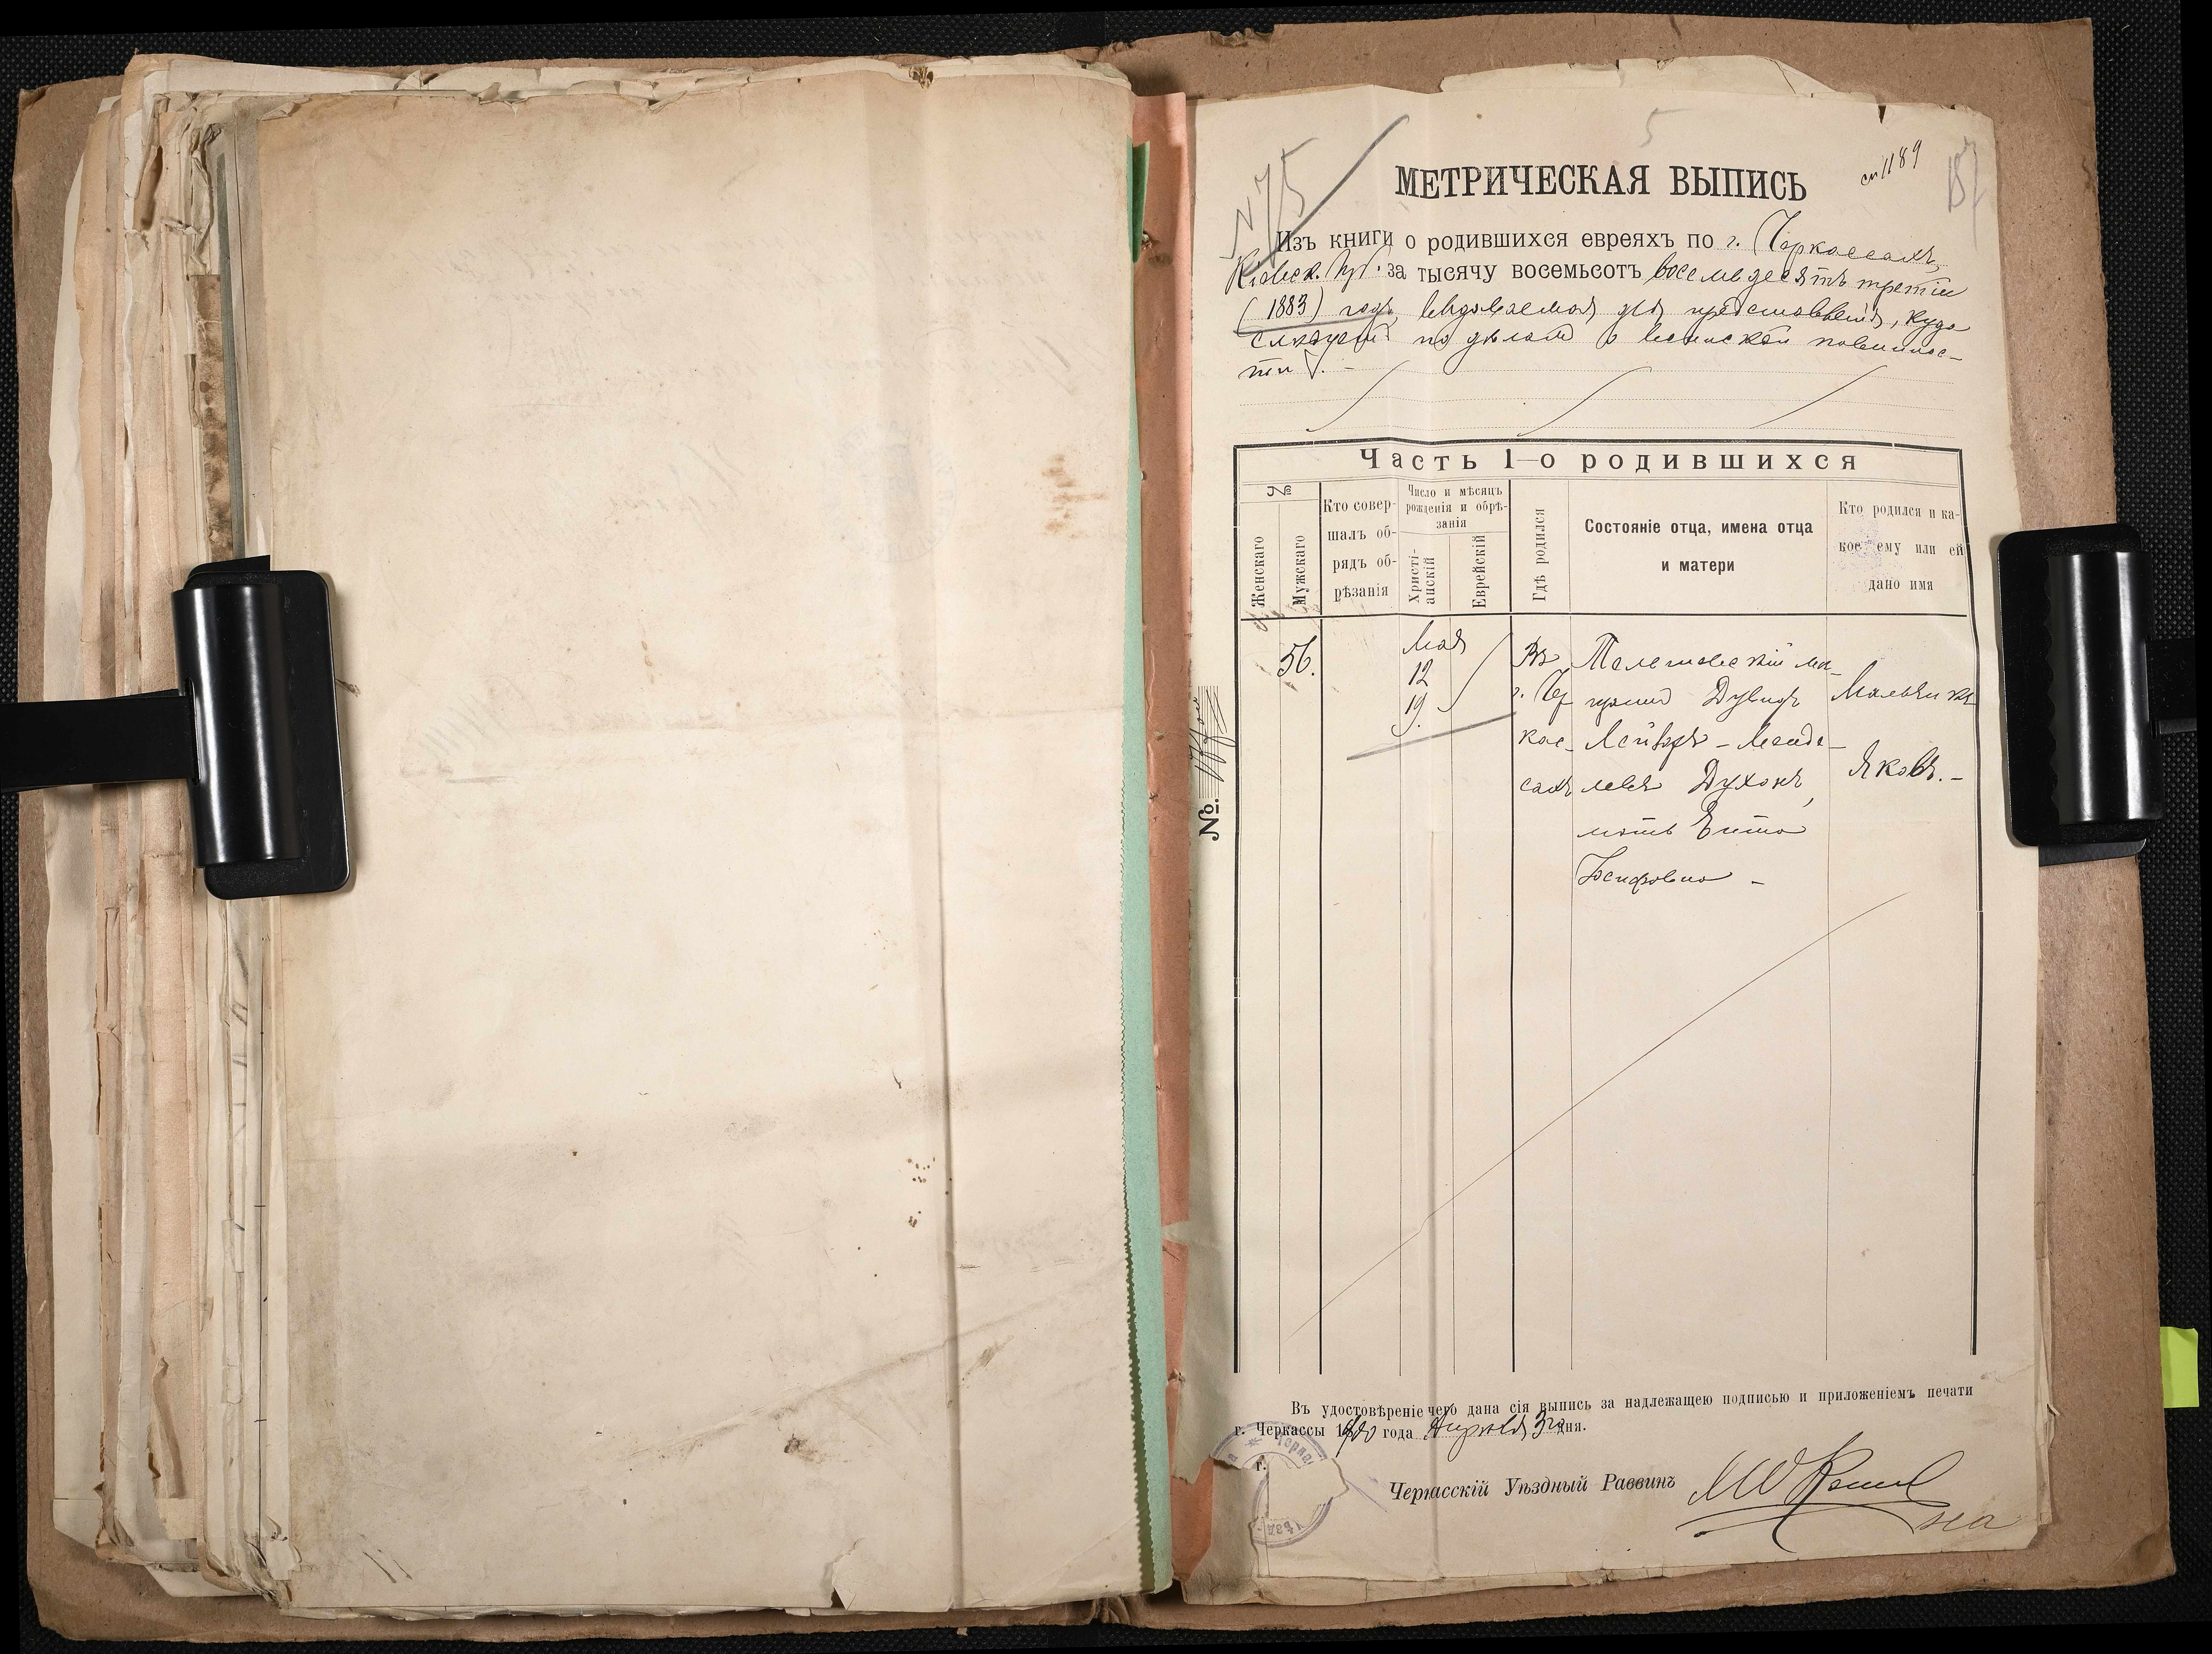 5
N 75
см 1189
187
МЕТРИЧЕСКАЯ ВЫПИСЬ
Изъ книги о родившихся евреяхъ по г. Черкассамъ,
Кіевск. губ. за тысячу восемьсотъ восемьдесятъ третій
(1883) годъ, выдаваемая для представленія, куда
слѣдуетъ по дѣламъ о воинской повиннос-
ти.
Часть 1-о родившихся
№
Женскаго
Мужскаго
Кто совер-
шалъ об-
рядъ об-
рѣзанія
Число и мѣсяцъ
рожденія и обрѣ-
занія
Христі-
анскій
Еврейскій
Гдѣ родился
Состояніе отца, имена отца
и матери
Кто родился и ка-
кое ему или ей
дано имя
56.
Мая
12
19.
Въ
г. Чер
кас-
сахъ
Дувидъ
Духонъ,
мать
Мальчикъ
Яковъ. -
№.
Въ удостовѣреніе чего дана сія выпись за надлежащею подписью и приложеніемъ печати
г. Черкассы 1900 года Апрѣля 3го дня.
Черкасскій Уѣздный Раввинъ